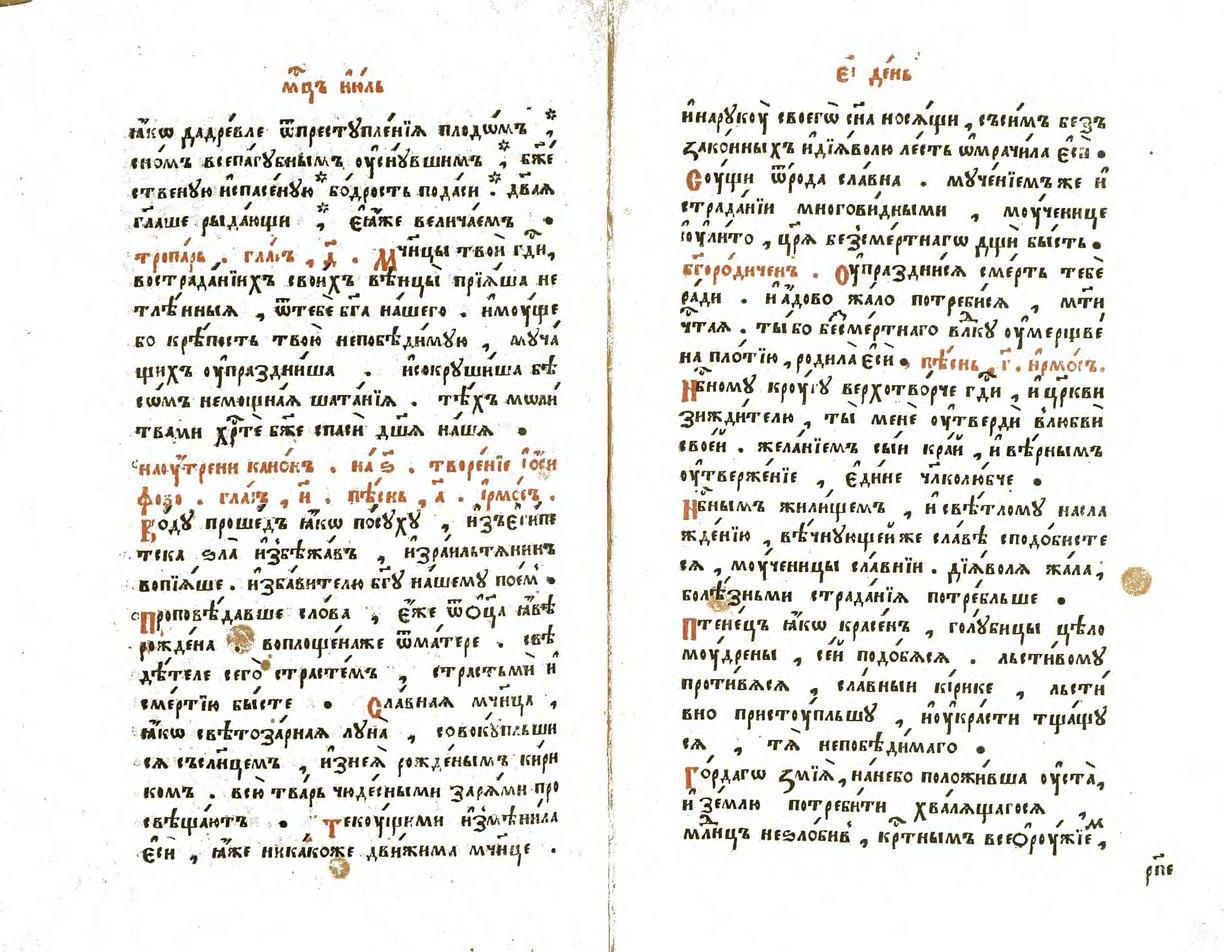 мⷭ҇цъ і҆ю́ль
ꙗ҆́кѡ дадре́вле ѿпрестꙋпле́нїѧ плодѡ́мъ *,
сно́мъ всепа́гꙋбнымъ ᲂу҆снꙋ́вшимъ *, бж҃е
ственꙋю и҆спасе́нꙋю * бо́дрость пода́си *. двⷪ҇аѧ
гл҃аше рыда́ющи *, ю҆́же велича́емъ •
тропа́рь . гла́съ , д҃ . Мч҃нцы твоѝ гдⷭ҇и,
востраданїихъ свои́хъ вѣнцы̀ прїѧ́ша не
тлѣ́нныѧ , ѿтебѐ бг҃а на́шего . и҆мᲂу́ще
бо крѣ́пость твою̀ непобѣди́мꙋю , мꙋча́
щихъ ᲂу҆праздни́ша . и҆сокрꙋши́ша бѣ́
сѡмъ немощна́ѧ шата́нїѧ . тѣ́хъ мѡли́
твами хрⷭ҇тѐ бж҃е спасѝ дш҃ѧ на́шѧ •
наᲂу҆́трени кано́нъ . на́ ѕ҃ . творе́нїе і҆ѡ́си
фово . гла́съ , и҃ . пѣ́снь , а҃ . і҆рмо́съ .
Во́дꙋ проше́дъ ꙗ҆́кѡ по́сꙋхꙋ , и҆зъє҆гѵ́пе
тска ѕла̀ и҆збѣжа́въ , и҆зраильтѧ́нинъ
вопїѧ́ше . и҆зба́вителю бг҃ꙋ на́шемꙋ пое́м •
Проповѣ́давше сло́ва , є҆́же ѿѻ҆ц҃а̀ ꙗ҆́вѣ
рожде́на . воплоще́наже ѿма́тере . свѣ
дѣ́теле сегѡ̀ страсте́мъ , страстьмѝ и҆
сме́ртїю бы́сте • Сла́внаѧ мч҃нца ,
ꙗ҆́кѡ свѣтоза́рнаѧ лꙋна̀ , совокꙋ́пльши
сѧ съсл҃нцемъ , и҆знеѧ̀ рожде́нымъ ки́ри
комъ . всю̀ тва́рь чюде́сными зарѧ́ми про
свѣща́ютъ • Текᲂу́щими и҆змѣни́ла
є҆сѝ , ꙗ҆́же ника́коже дви́жима мч҃нце .
є҃і де́нь
и҆нарꙋкᲂу̀ своегѡ̀ сн҃а носѧ́щи , съси́мъ безъ
зако́нныхъ и҆дїѧ́волю ле́сть ѡ҆мрачи́ла є҆сѝ •
Сᲂу́щи ѿро́да сла́вна . мꙋче́нїемъже и҆
страда́нїи многови́дными , мᲂу́ченице
і҆ᲂу́лито , цр҃ѧ̀ безсме́ртнагѡ дщѝ бы́сть •
бг҃оро́диченъ . Оу҆праздни́сѧ сме́рть тебѐ
ра́ди . и҆а҆́дово жа́ло потреби́сѧ , мт҃и
чⷭ҇таѧ . ты́ бо безсме́ртнаго влⷣкꙋ ᲂу҆мерщве́
на пло́тїю , родила̀ є҆сѝ • пѣ́снь , г҃ . і҆рмо́съ.
Нб҃номꙋ крᲂу́гꙋ верхотво́рче гдⷭ҇и , и҆ цр҃кви
зижди́телю , ты̀ менѐ ᲂу҆твердѝ влюбвѝ
свое́й . жела́нїемъ сы́й кра́й , и҆ вѣ́рнымъ
ᲂу҆твержє́нїе , є҆ди́не чл҃колю́бче •
Нб҃нымъ жили́щемъ , и҆ свѣ́тломꙋ насла
жде́нїю , вѣ́чнꙋющей же сла́вѣ сподо́бисте
сѧ , мᲂу́ченицы сла́внїи . дїѧ́волѧ жа́ла,
болѣ́зньми страда́нїѧ потре́бльше •
Птене́цъ ꙗ҆́кѡ кра́сенъ , голꙋ́бицы цѣ́ло
мᲂу́дрены , се́й подо́бѧсѧ . льсти́вомꙋ
проти́вѧсѧ , сла́вныи кі́рике , льсти́
вно пристᲂу́пльшꙋ , и҆ᲂу҆кра́сти тща́щꙋ
сѧ , тѧ̀ непобѣди́маго •
Го́рдагѡ ѕмі́ѧ , на́небо положи́вша ᲂу҆ста̀,
и҆ зе́млю потреби́ти хвалѧ́щагосѧ
млⷣнцъ неѕло́бивъ , крⷭ҇тнымъ всеѻ҆рᲂу́жїемъ ,
рп҃е